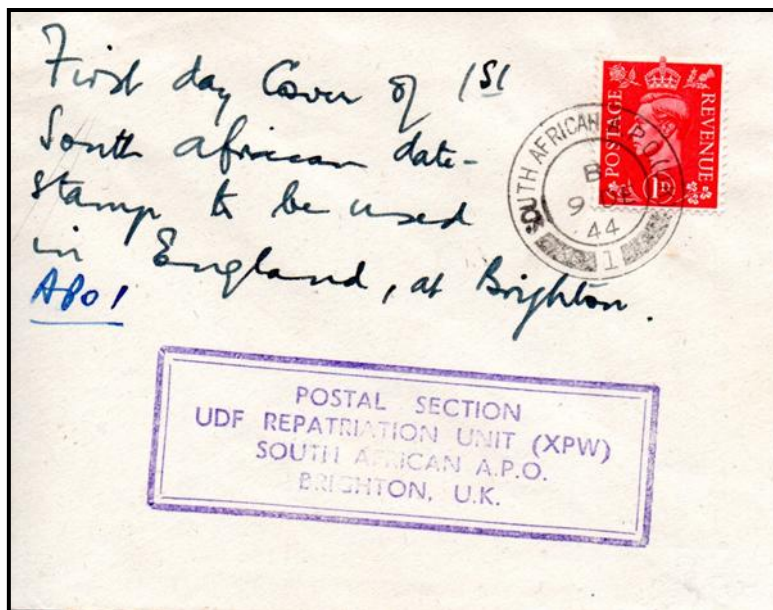 First day Cover of 1st
South African date-
stamp to be used
in England, at Brighton.
APO 1
POSTAGE
REVENUE
1D
SOUTH AFRICAN A.P.O. U.K.
B
9
44
1
POSTAL SECTION
UDF REPATRIATION UNIT (XPW)
SOUTH AFRICAN A.P.O.
BRIGHTON, U.K.